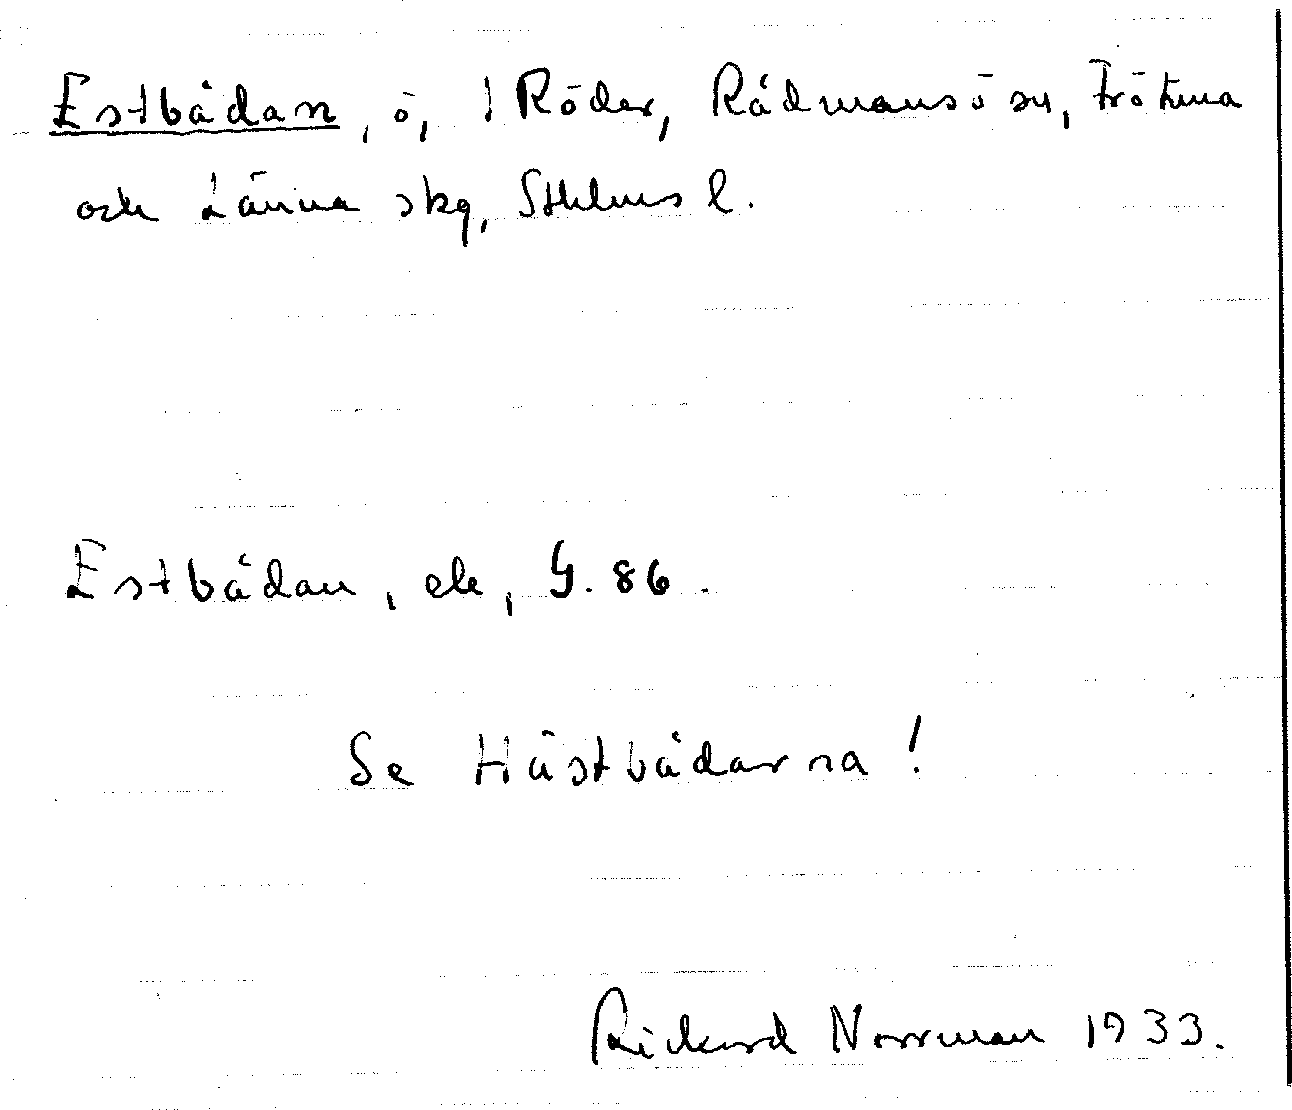 Estbådan, ö, i Röder, Rådmansö sn, Frötuna
och Länna skg, Sthlms l.
Estbådan, ek, G. 86.
Se Hästbådarna!
Rickard Norrman 1933.